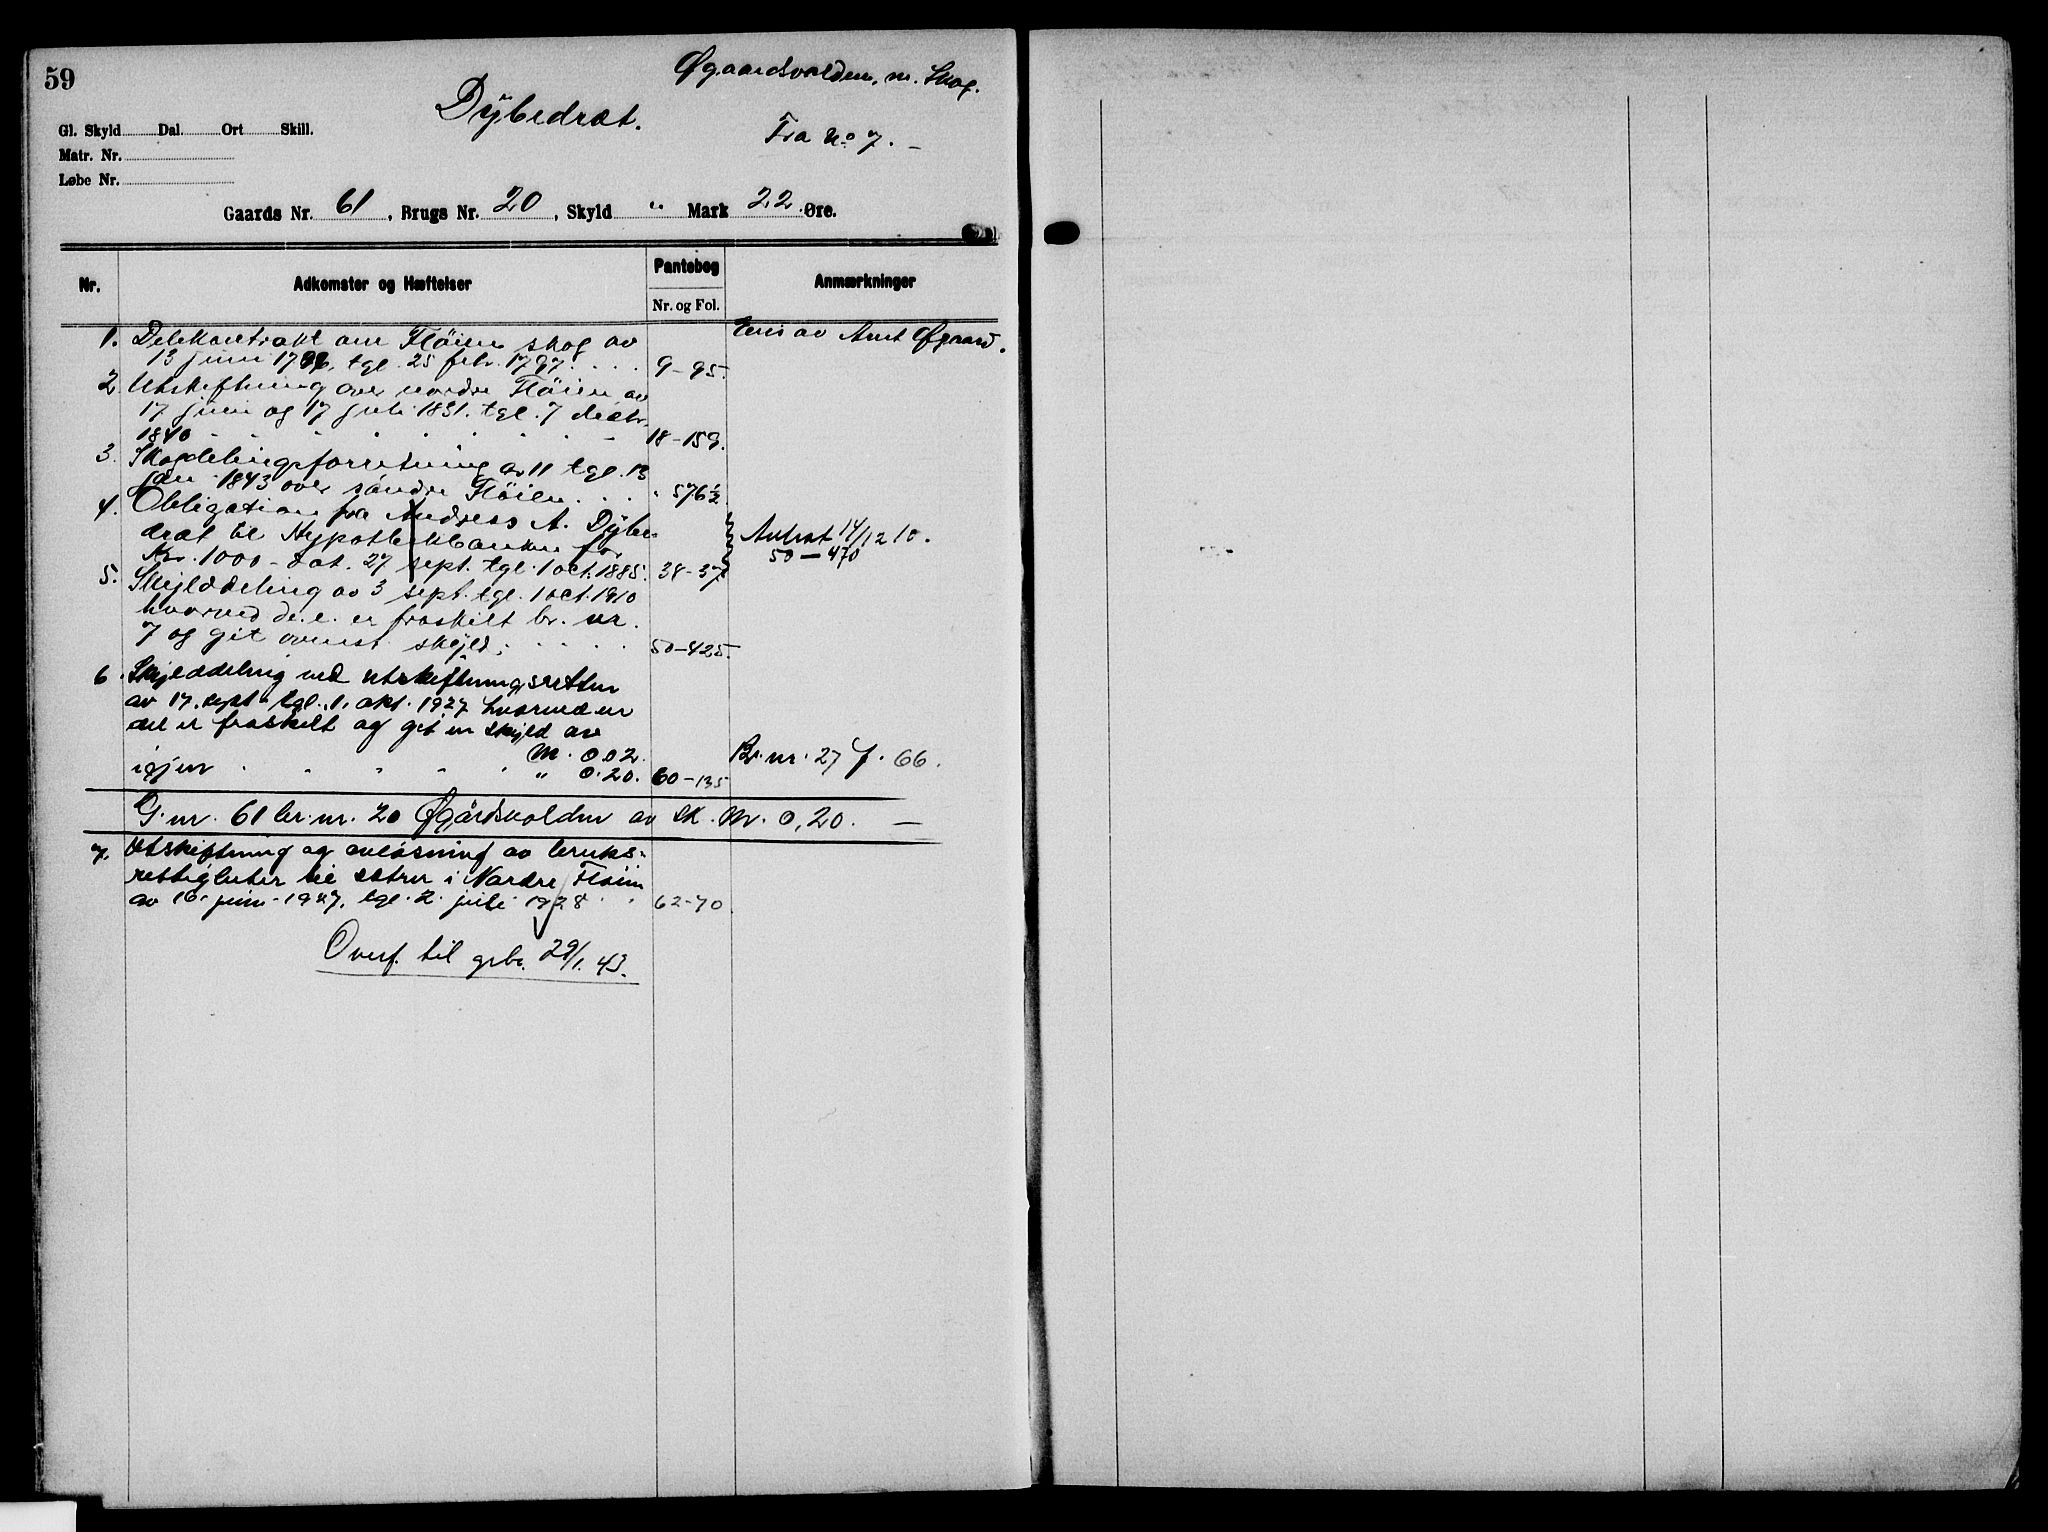 59
Øgaardsvolden, m. Skog.
Dybedræt.
Fra No 7. –
Gl. Skyld Dal. Ort Skill.
Matr. Nr.
Løbe Nr.
Gaards Nr. 61, Brugs Nr. 20, Skyld " Mark 22 Øre.
Nr. Adkomster og Hæftelser Pantebog Nr. og Fol. Anmærkninger
1. Delekontrakt om Fløien skog av Eies av Øgaard.
13 juni 1796, tgl. 25 febr. 1797. . . . 9–95.
2. Utskiftning over nordre Fløien av
17 juni og 17 juli 1831. tgl. 7 decbr.
1840 . . . . . . . 18–159.
3. Skogdelingsforretning av 11 tgl. 13
jan. 1843 over søndre Fløien . . . " 576½
4. Obligation fra Andreas A. Dybe-
dræt til Hypothekbanken for Avlyst 14/12 10.
Kr. 1000 – dat. 27 sept. tgl. 1 oct. 1885. 38–37 50–470
5. Skylddeling av 3 sept. tgl. 1 oct. 1910
hvorved d. e. er fraskilt br. nr.
7 og git ovenst. skyld. . . . . 50–425.
6. Skylddeling ved utskiftningsretten
av 17. sept. tgl. 1. okt. 1927 hvorved en
del er fraskilt og git en skyld av
M. 0.02. Br. nr. 27 f. 66.
igjen . . . . . " 0.20. 60–135
G. nr. 61 br. nr. 20 Øgårdsvolden av sk. M. 0,20. –
7. Utskiftning og avløsning av bruks-
rettigheter til sætrer i Nordre Fløien
av 16. juni 1927, tgl. 2. juli 1928 . . 62–70
Overf. til grb. 29/1. 43.